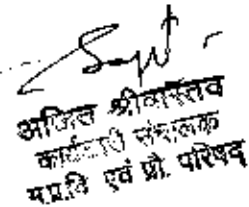 अजित श्रीवास्तव
कार्यकारी संचालक
म.प्र.वि एवं प्रौ. परिषद्